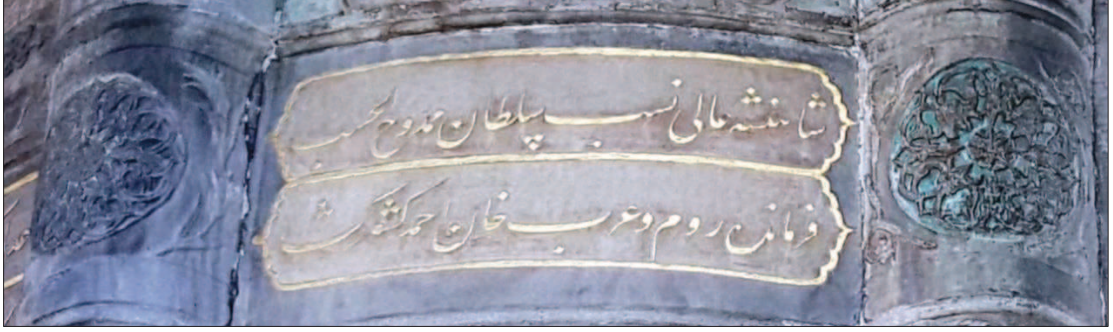 شاهنشه عالی نسب سلطان ممدوح الحسب
فرمانده روم و عرب خان احمد کشورگشا